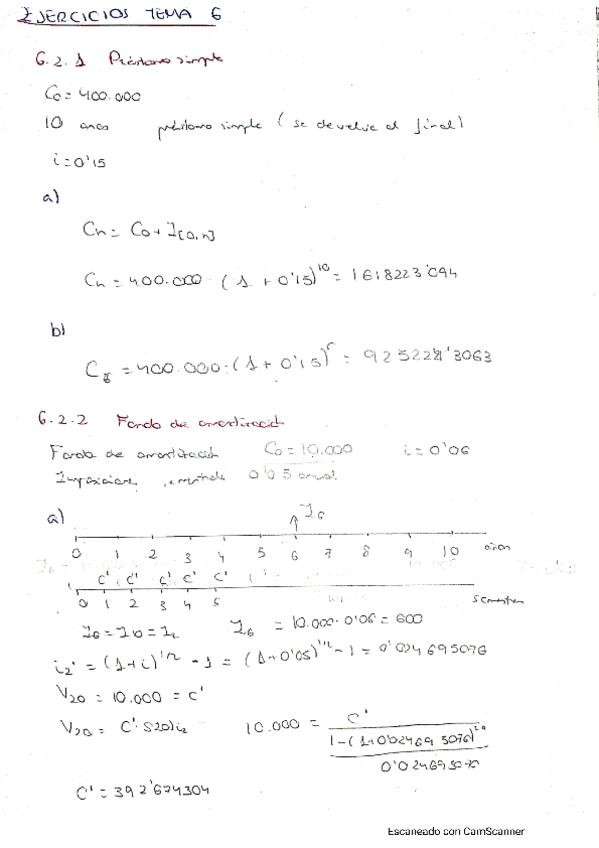 EJERCICIOS TEMA 6
6.2.1 Préstamo simple
C0 = 400.000
10 años préstamo simple (se devuelve al final)
i = 0'15
a)
Cn = C0 + I[0,n]
Cn = 400.000 · (1 + 0'15)^10 = 1618223'094
b)
= 400.000 · (1 + 0'15) = '3063
6.2.2 Fondo de
Fondo de C0 = 10.000 i = 0'06
0'05 anual
a)
I6
0 1 2 3 4 5 6 7 8 9 10 años
C' C' C' C' C'
0 1 2 3 4 5
I6 = I10 = I6 = 10.000 · 0'06 = 600
i2' = (1+i)^1/2 - 1 = (1+0'05)^1/2 - 1 = 0'024695076
V20 = 10.000 = C'
V20 = C' · S20 i2 10.000 = C'
1-(1+0'024695076)^20
0'024695076
C' = 392'674304
Escaneado con CamScanner